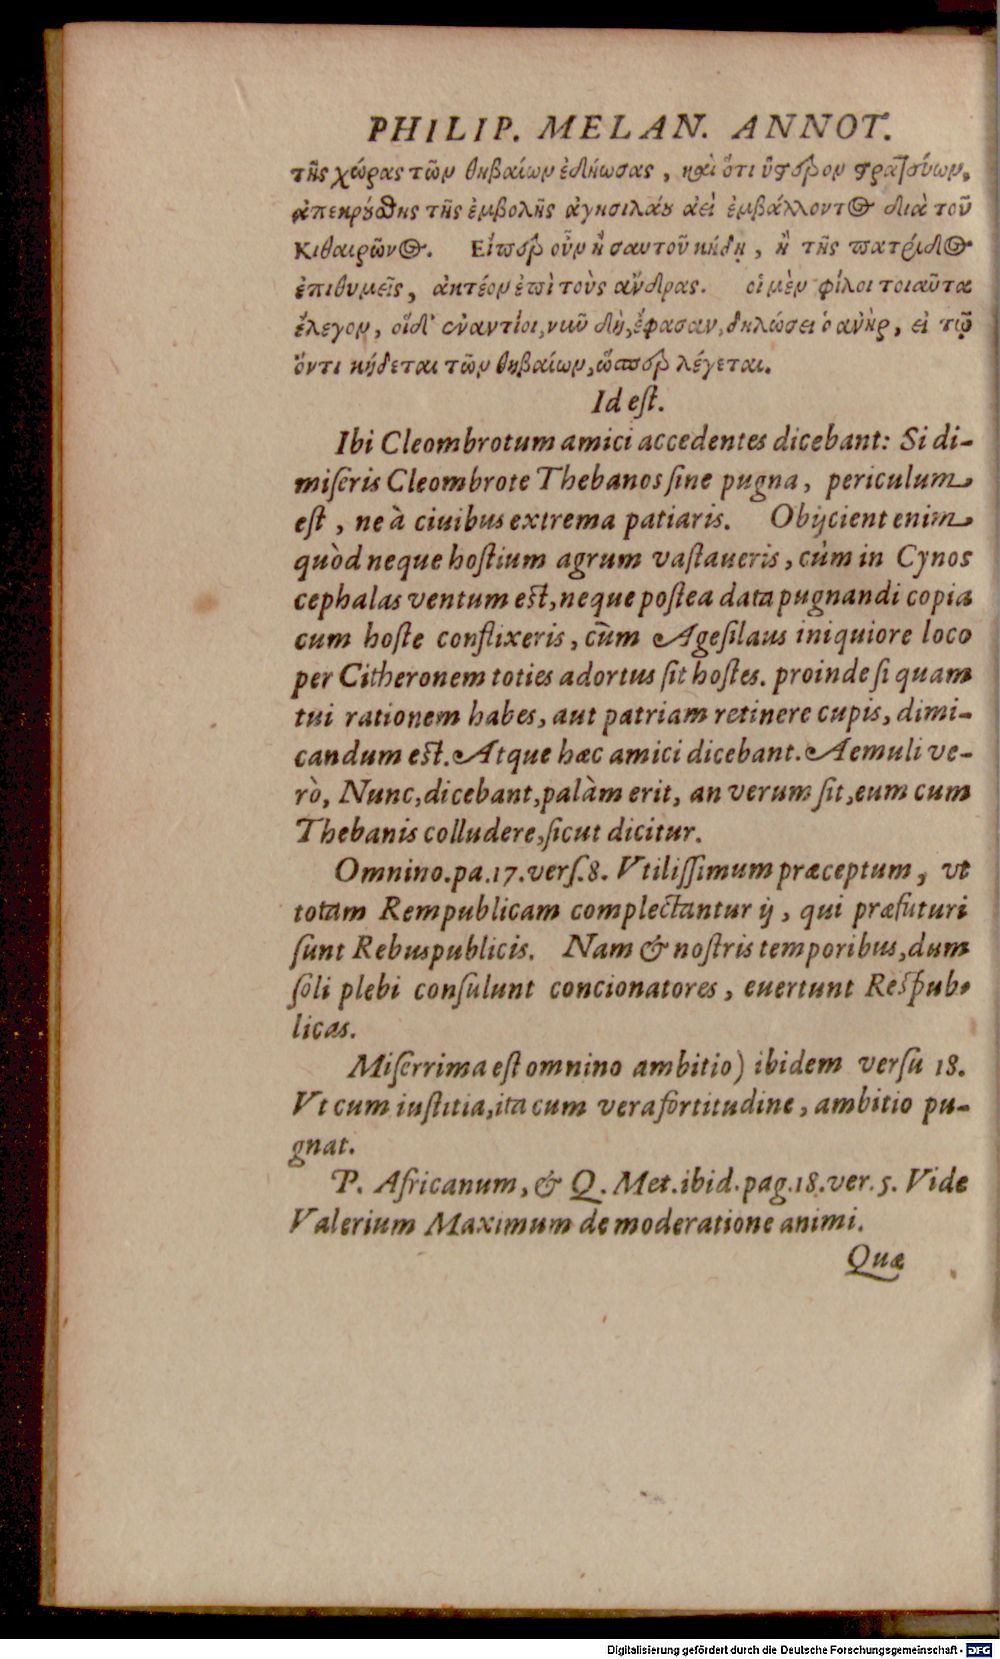 PHILIP. MELAN. ANNOT.
τῆς χώρας τῶν θηβαίων ἐδῄωσας, καὶ ὅτι ὕστερον στρατεύων,
ἀπεκρούσθης τῆς ἐμβολῆς ἀγησιλάου ἀεὶ ἐμβάλλοντος διὰ τοῦ
Κιθαιρῶνος. Εἴπερ οὖν ἢ σαυτοῦ κήδῃ, ἢ τῆς πατρίδος
ἐπιθυμεῖς, ἀκτέον ἐπὶ τοὺς ἄνδρας. οἱ μὲν φίλοι τοιαῦτα
ἔλεγον, οἱ δ' ἐναντίοι, νῦν δὴ, ἔφασαν, δηλώσει ὁ ἀνὴρ, εἰ τῷ
ὄντι κήδεται τῶν θηβαίων, ὥσπερ λέγεται.
Id eſt.
Ibi Cleombrotum amici accedentes dicebant: Si di-
miſeris Cleombrote Thebanos ſine pugna, periculum
eſt, ne à ciuibus extrema patiaris. Obijcient enim
quòd neque hoſtium agrum vaſtaueris, cùm in Cynos
cephalas ventum eſt, neque poſtea data pugnandi copia
cum hoſte conflixeris, cùm Ageſilaus iniquiore loco
per Citheronem toties adortus ſit hoſtes. proinde ſi quam
tui rationem habes, aut patriam retinere cupis, dimi-
candum eſt. Atque hæc amici dicebant. Aemuli ve-
rò, Nunc, dicebant, palàm erit, an verum ſit, eum cum
Thebanis colludere, ſicut dicitur.
Omnino. pa. 17. verſ. 8. Vtiliſſimum præceptum, vt
totam Rempublicam complectantur ij, qui præfuturi
ſunt Rebuspublicis. Nam & noſtris temporibus, dum
ſoli plebi conſulunt concionatores, euertunt Reſpub-
licas.
Miſerrima eſt omnino ambitio) ibidem verſu 18.
Vt cum iuſtitia, ita cum vera fortitudine, ambitio pu-
gnat.
P. Africanum, & Q. Met. ibid. pag. 18. ver. 5. Vide
Valerium Maximum de moderatione animi.
Quæ
Digitalisierung gefördert durch die Deutsche Forschungsgemeinschaft - DFG